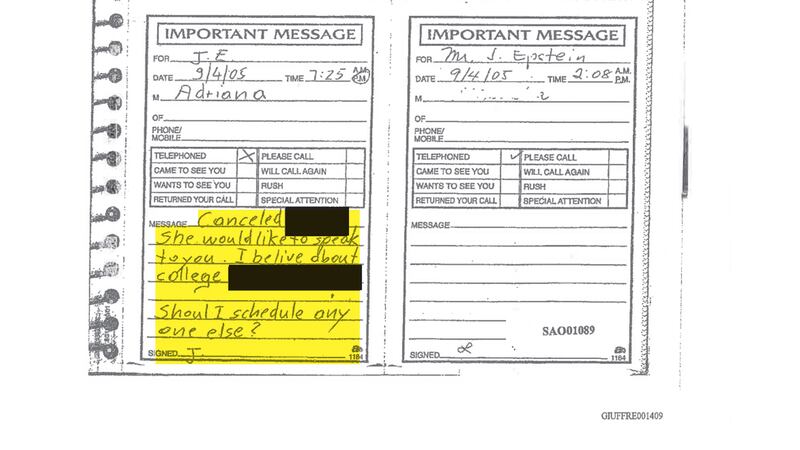 IMPORTANT MESSAGE
FOR J.E.
DATE 9/4/05 TIME 7:25 A.M. P.M.
M Adriana
OF
PHONE/
MOBILE
TELEPHONED X PLEASE CALL
CAME TO SEE YOU WILL CALL AGAIN
WANTS TO SEE YOU RUSH
RETURNED YOUR CALL SPECIAL ATTENTION
MESSAGE Canceled
She would like to speak
to you. I belive about
college
Shoul I schedule any
one else?
SIGNED J.
1184
IMPORTANT MESSAGE
FOR Mr. J. Epstein
DATE 9/4/05 TIME 2:08 A.M. P.M.
M
OF
PHONE/
MOBILE
TELEPHONED ✓ PLEASE CALL
CAME TO SEE YOU WILL CALL AGAIN
WANTS TO SEE YOU RUSH
RETURNED YOUR CALL SPECIAL ATTENTION
MESSAGE
SAO01089
SIGNED
1184
GIUFFRE001409